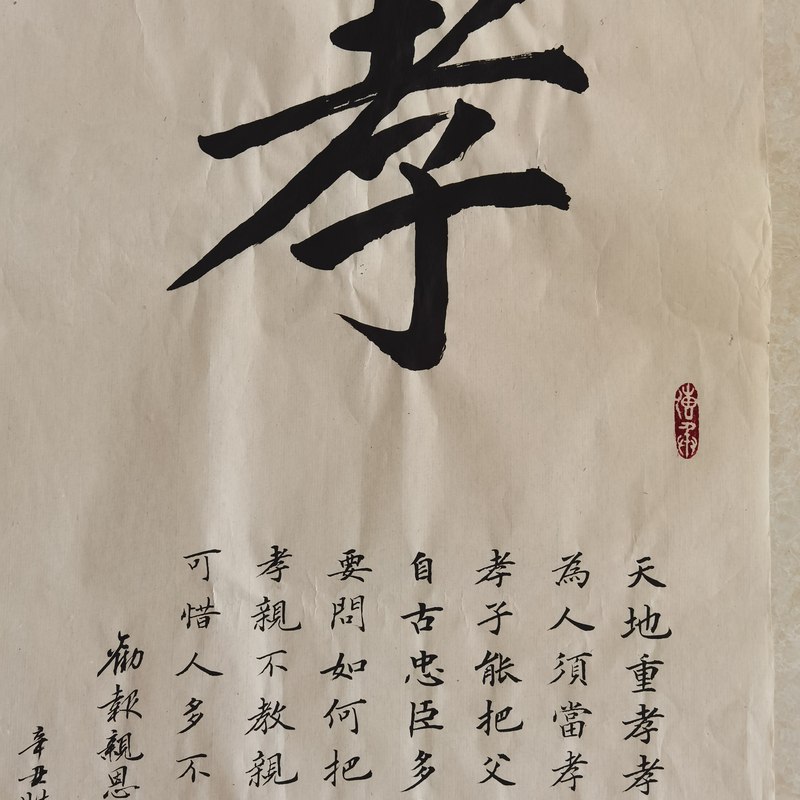 孝
天地重孝孝
為人須當孝
孝子能把父
自古忠臣多
要問如何把
孝親不教親
可惜人多不
勸報親恩
辛丑